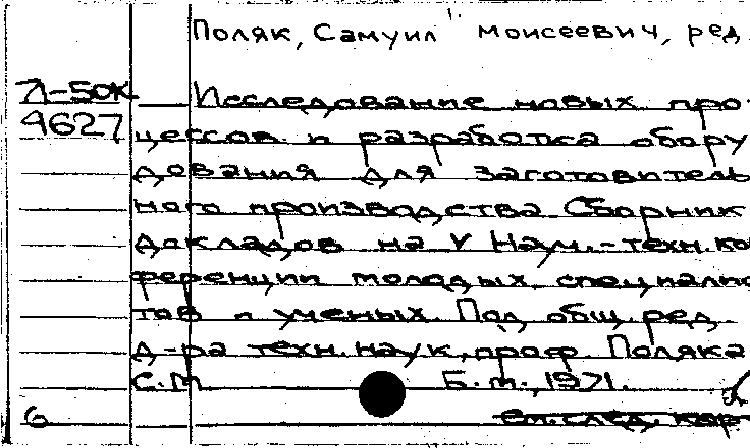 Поляк, Самуил Моисеевич, ред
Л-50к
4627
Исследование новых про
цессов и разработка обору
дования для заготовитель
ного производства Сборник
докладов на V Науч.-техн. кон
ференции молодых специалис
тов и ученых. Под общ. ред.
д-ра техн. наук, проф. Поляка
С.М Б. м., 1971.
6 см. след. кар